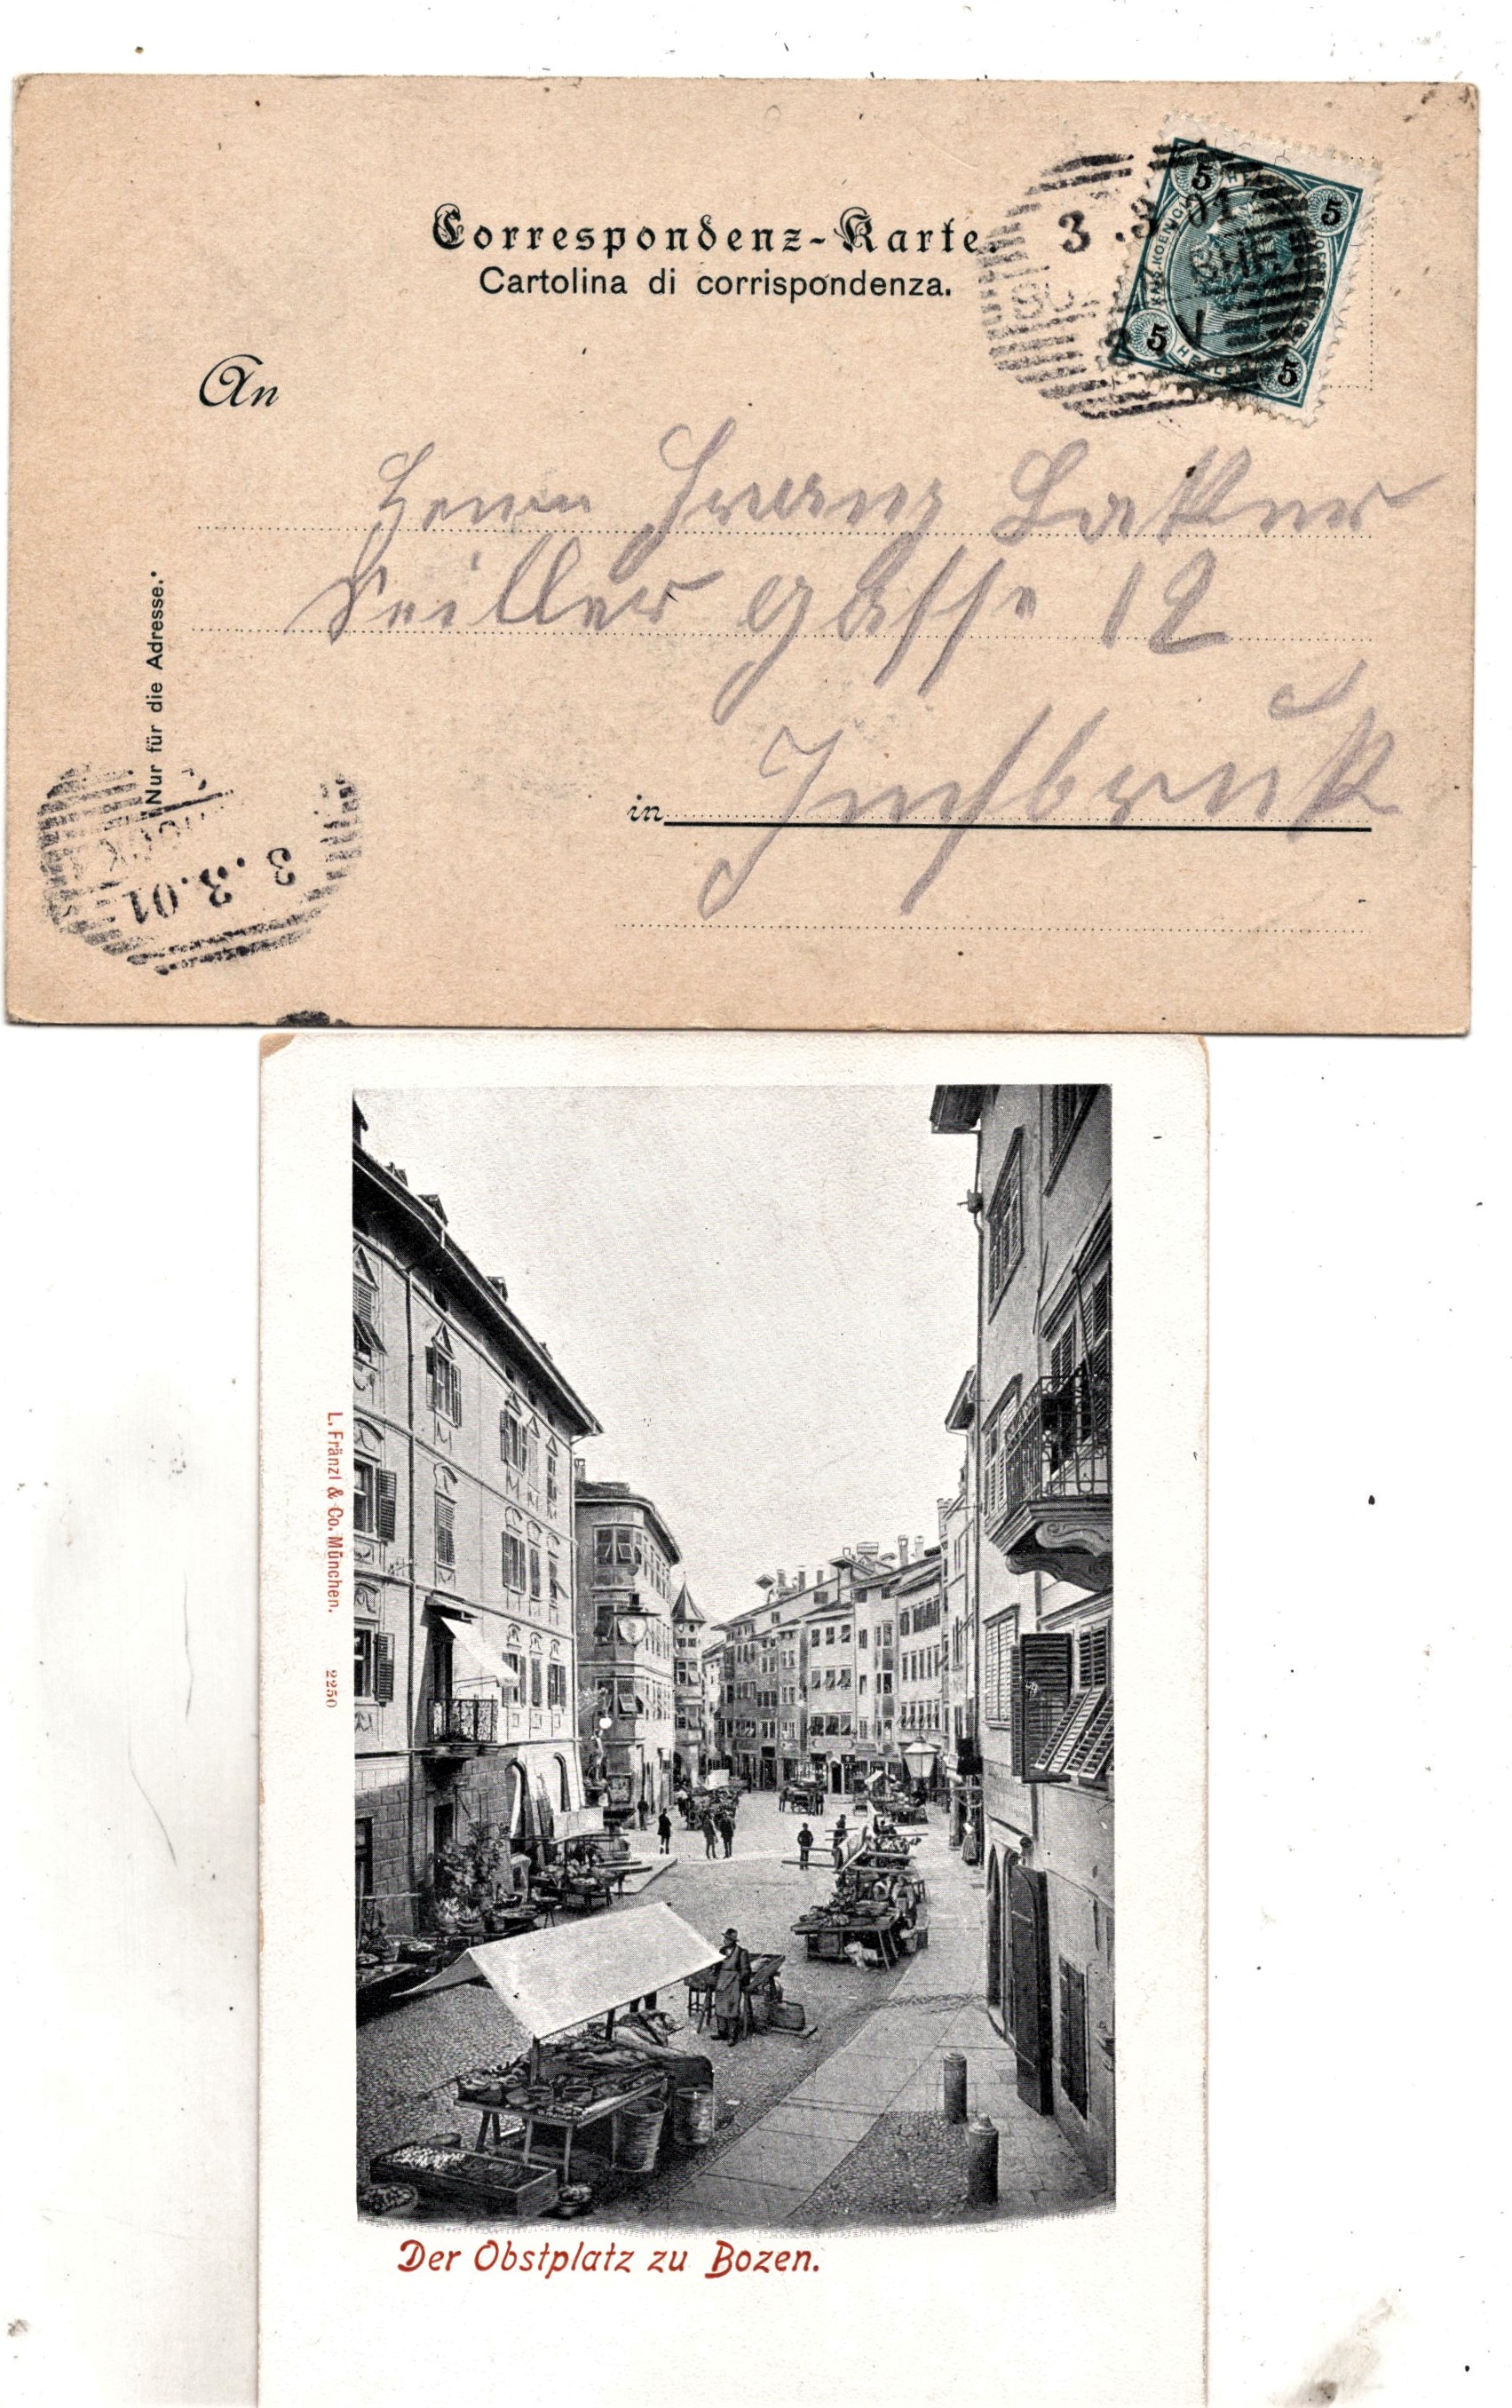 Correspondenz-Karte.
Cartolina di corrispondenza.
3.3.01
5 5 5 5
An
Herrn Franz
Seiller gasse 12
in Insbruk
Nur für die Adresse.
3.3.01
L. Fränzl & Co. München. 2250
Der Obstplatz zu Bozen.